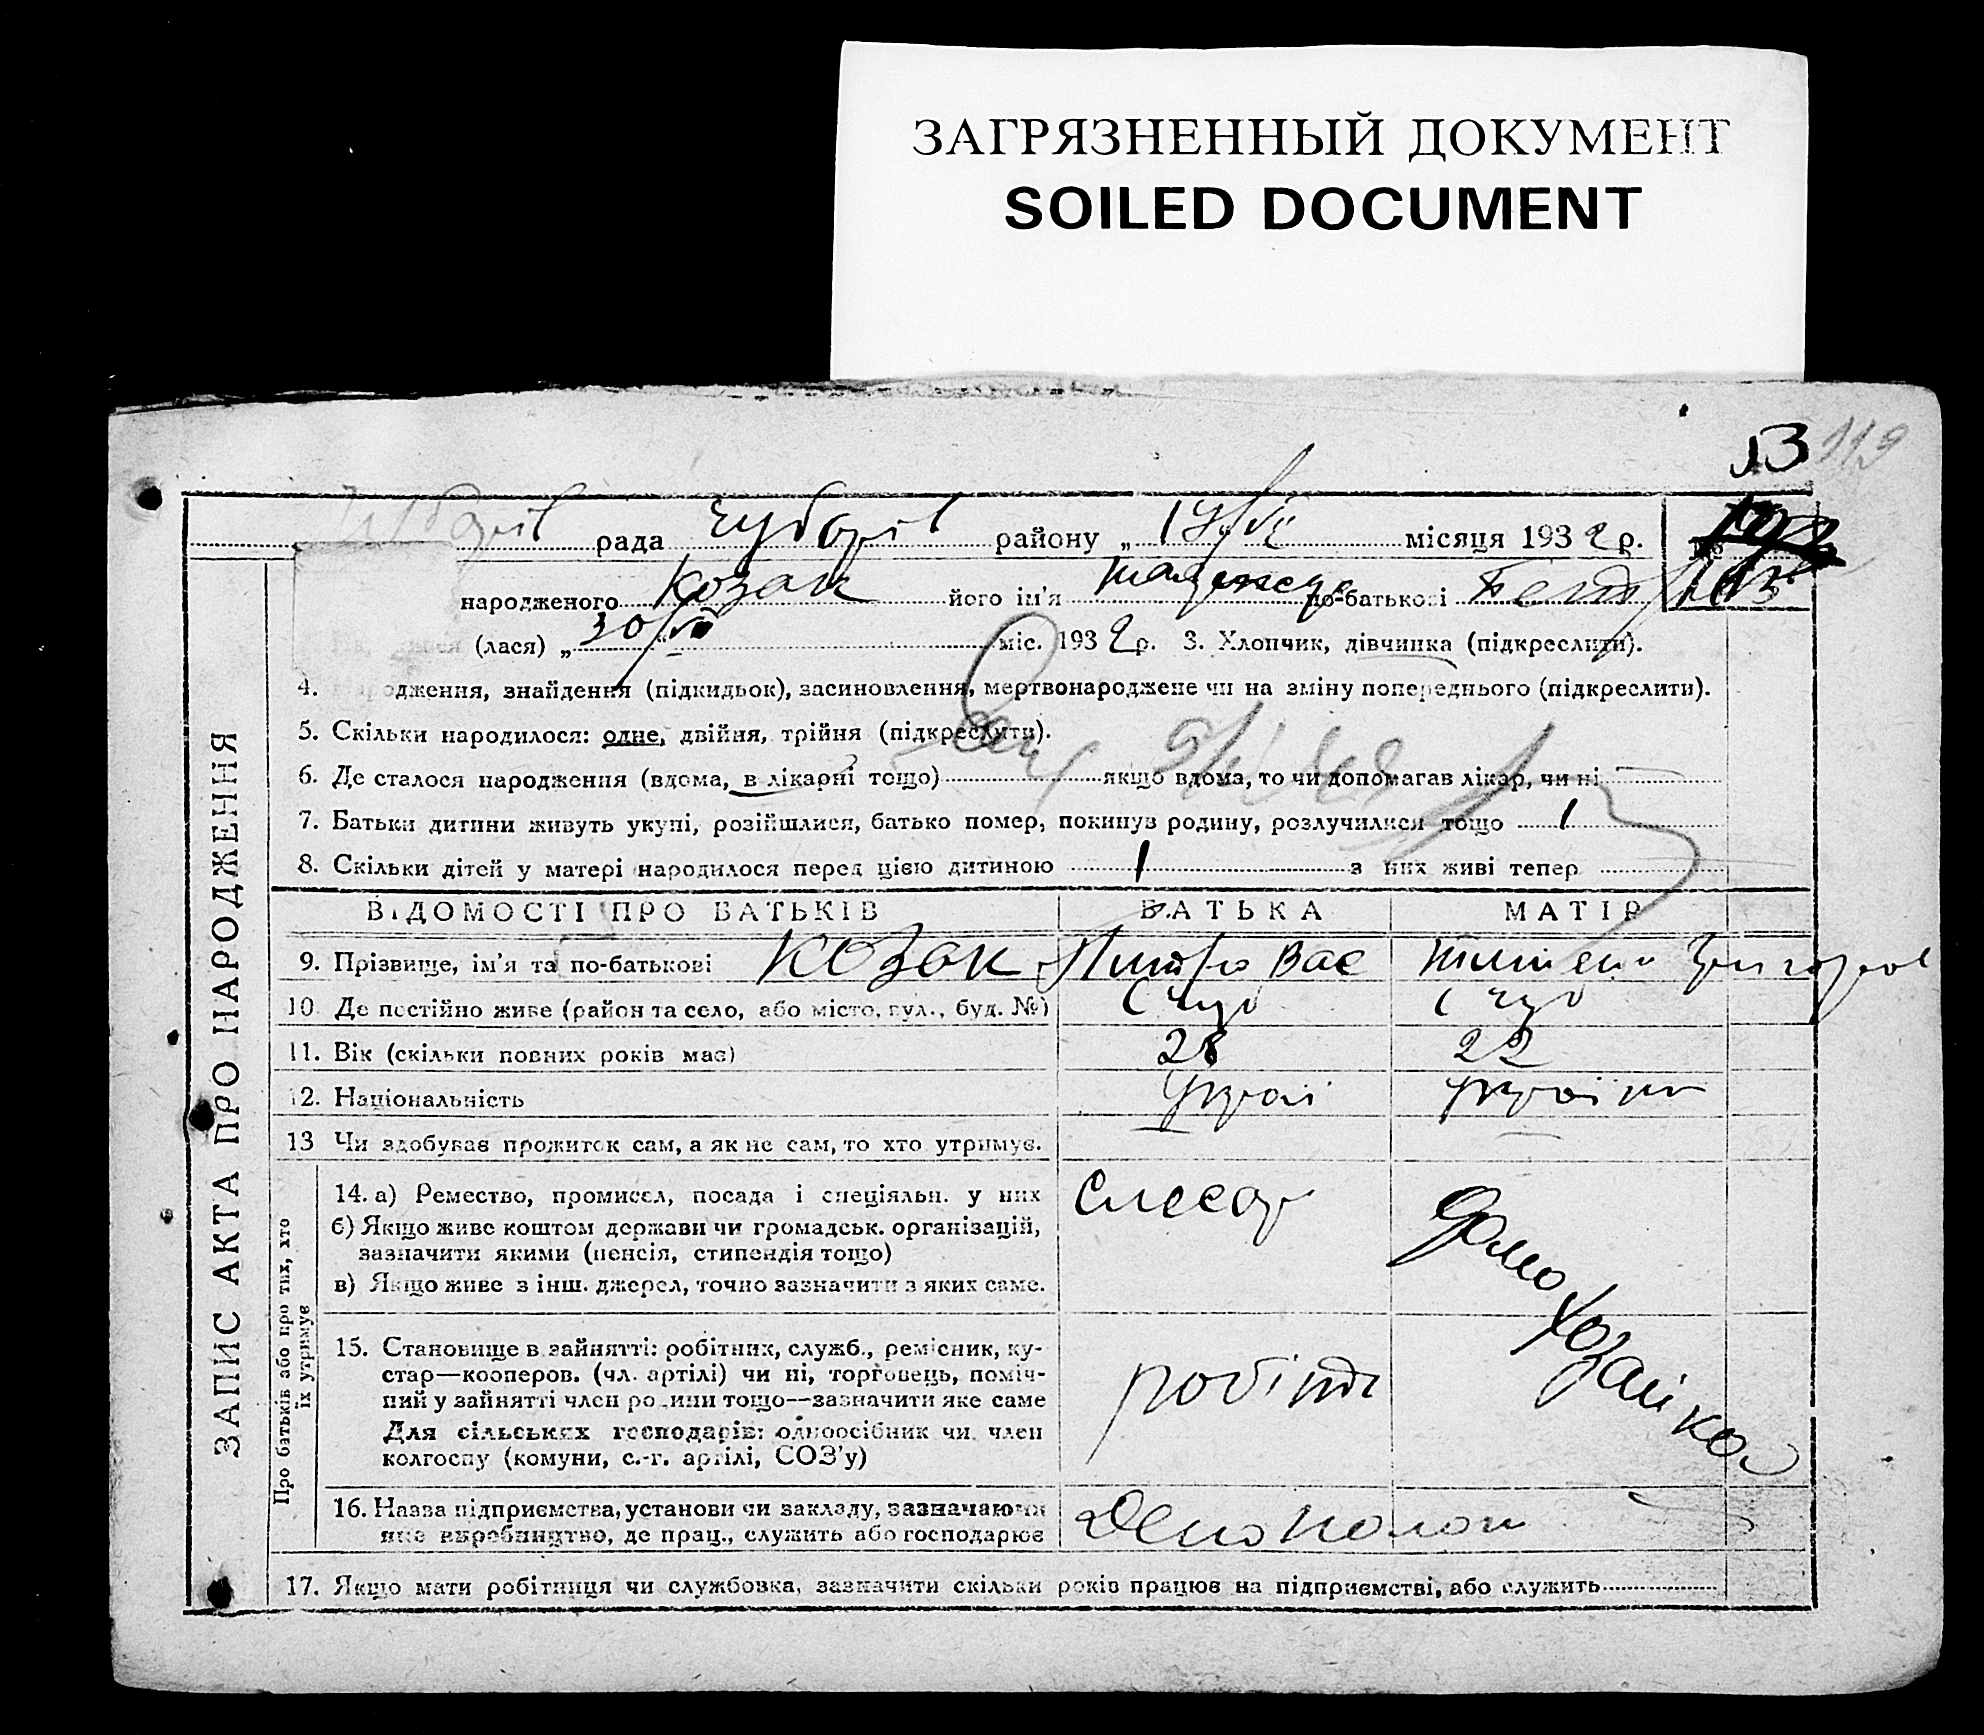 ЗАГРЯЗНЕННЫЙ ДОКУМЕНТ
SOILED DOCUMENT
13 119
рада району „ " місяця 1932 р. №
народженого Козак його ім'я по-батькові
(лася) „30/ " міс. 1932 р. 3. Хлопчик, дівчинка (підкреслити).
4. одження, знайдення (підкидьок), засиновлення, мертвонароджене чи на зміну попереднього (підкреслити).
5. Скільки народилося: одне, двійня, трійня (підкреслити).
6. Де сталося народження (вдома, в лікарні тощо) якщо вдома, то чи допомагав лікар, чи ні —
7. Батьки дитини живуть укупі, розійшлися, батько помер, покинув родину, розлучилися тощо 1
8. Скільки дітей у матері народилося перед цією дитиною 1 з них живі тепер
ВІДОМОСТІ ПРО БАТЬКІВ БАТЬКА МАТІР
9. Прізвище, ім'я та по-батькові Козак Вас
10. Де постійно живе (район та село, або місто, вул., буд. №) с Чуб с Чуб
11. Вік (скільки повних років має) 28 22
12. Національність Украї україн
13 Чи здобував прожиток сам, а як не сам, то хто утримує. — —
14. а) Ремество, промисел, посада і спеціяльн. у них слесар Домохозайка
б) Якщо живе коштом держави чи громадськ. організацій,
зазначити якими (пенсія, стипендія тощо)
в) Якщо живе з інш. джерел, точно зазначити з яких саме.
15. Становище в зайнятті: робітник, служб., ремісник, ку-
стар—кооперов. (чл. артілі) чи ні, торговець, поміч-
ний у зайнятті член родини тощо—зазначити яке саме робітн
Для сільських господарів: одноосібник чи член
колгоспу (комуни, с.-г. артілі, СОЗ'у)
16. Назва підприємства, установи чи закладу, зазначаючи
яке виробництво, де прац., служить або господарює Депо
17. Якщо мати робітниця чи службовка, зазначити скільки років працює на підприємстві, або служить
ЗАПИС АКТА ПРО НАРОДЖЕННЯ
Про батьків або про тих, хто
їх утримує